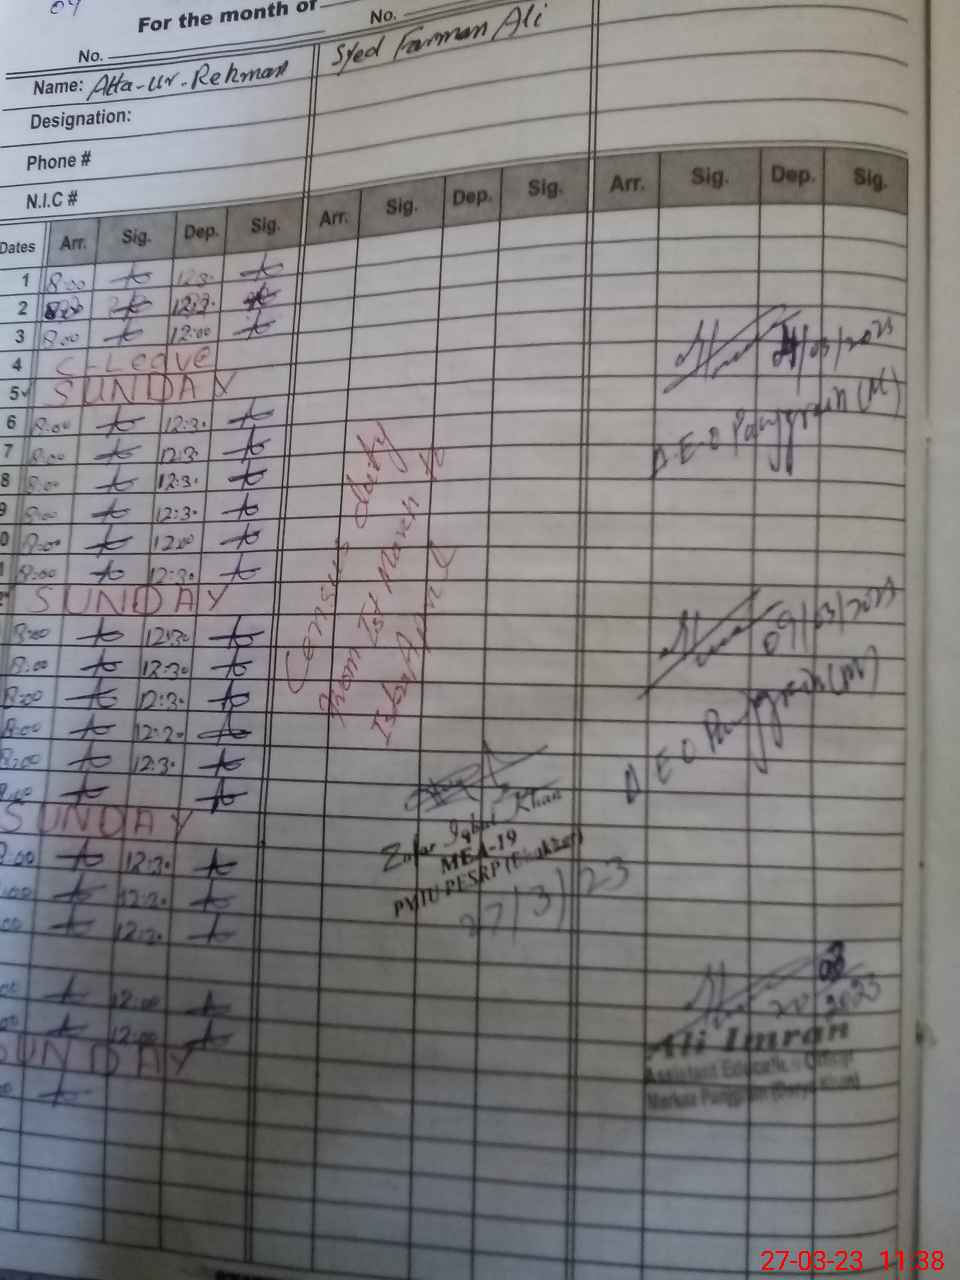 04
For the month of
No.
No.
Name: Atta-ur-Rehman
Syed Farman Ali
Designation:
Phone #
N.I.C #
Dates Arr. Sig. Dep. Sig. Arr. Sig. Dep. Sig. Arr. Sig. Dep. Sig.
1 8:00 12:3
2 8:00 12:3
3 8:00 12:00
4 C-Leave
5 SUNDAY
6 8:00 12:30
7 8:00 12:3
8 8:00 12:30
9 8:00 12:30
0 8:00 12:00
8:00 12:30
SUNDAY
8:00 12:30
8:00 12:30
8:00 12:30
8:00 12:30
8:00 12:30
SUNDAY
:00 12:30
:00 12:30
00 12:30
00 12:00
00 12:00
SUNDAY
Census duty
from 1st March to
1st April
/03/2023
A.E.O Panjgrain (M)
09/03/2023
A E O Panjgrain (M)
Zafar Iqbal Khan
MEA-19
PMIU PESRP (Bhakkar)
27/3/23
2023
Ali Imran
Assistant Education Officer
Markaz Panjgrain
27-03-23 11:38